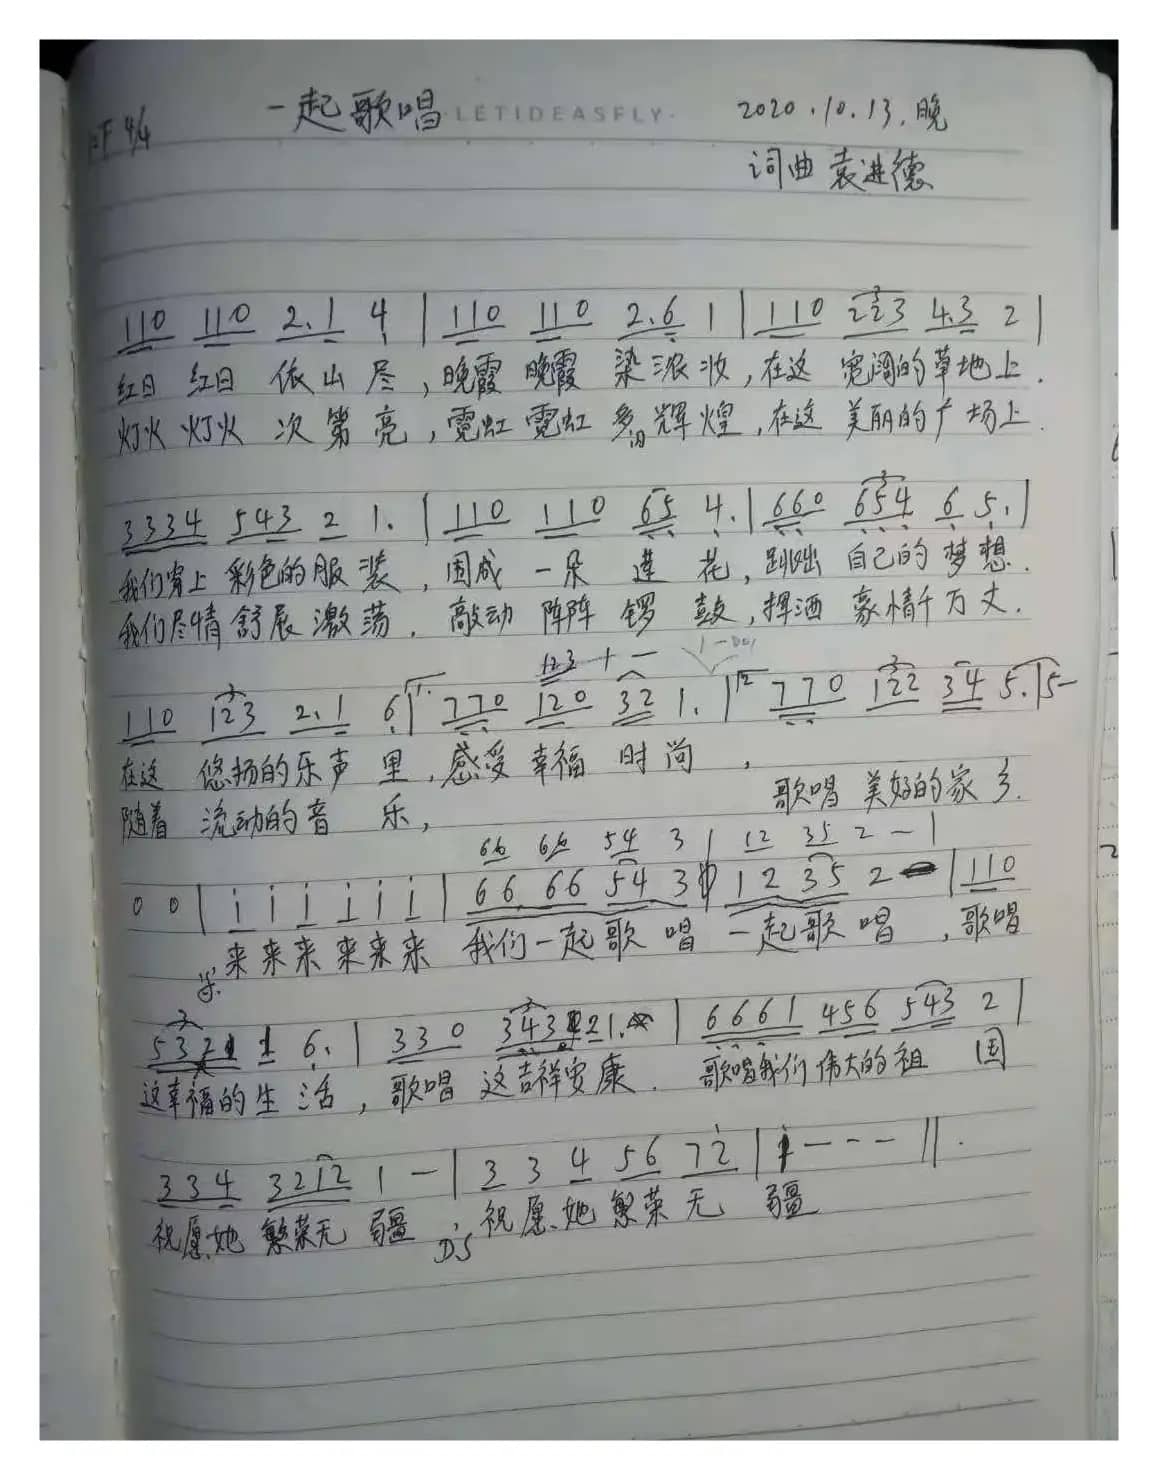 一起歌唱 LETIDEASFLY 2020.10.13.晚
1=F 4/4
词曲 袁进德
110 110 2.1 4 | 110 110 2.6 1 | 110 223 4.3 2 |
红日 红日 依山尽,晚霞 晚霞 染浓妆,在这 宽阔的草地上.
灯火 灯火 次第亮,霓虹 霓虹 多辉煌,在这 美丽的广场上.
3334 543 2 1. | 110 110 65 4. | 660 654 6 5. |
我们穿上 彩色的服装,围成 一朵 莲花,跳出 自己的梦想.
我们尽情 舒展激荡.敲动 阵阵 锣鼓,挥洒 豪情千万丈.
123 1 —
110 123 2.1 6 | 1. 770 120 32 1. | 2 770 122 34 5. | 5—
在这 悠扬的乐声里,感受 幸福 时尚,
歌唱 美好的家乡.
随着 流动的音乐,
66 66 54 3 | 12 35 2 — |
0 0 | i i i i i i | 66 66 54 3 | 12 35 2 | 110
来来来来来来 我们一起歌唱 一起歌唱,歌唱
532 1 6. | 330 343 21. | 6661 456 543 2 |
这幸福的生活,歌唱 这吉祥安康.歌唱我们伟大的祖国
334 3212 1 — | 3 3 4 56 72 | i - - - ‖.
祝愿她 繁荣无疆,祝愿她 繁荣无疆
DS